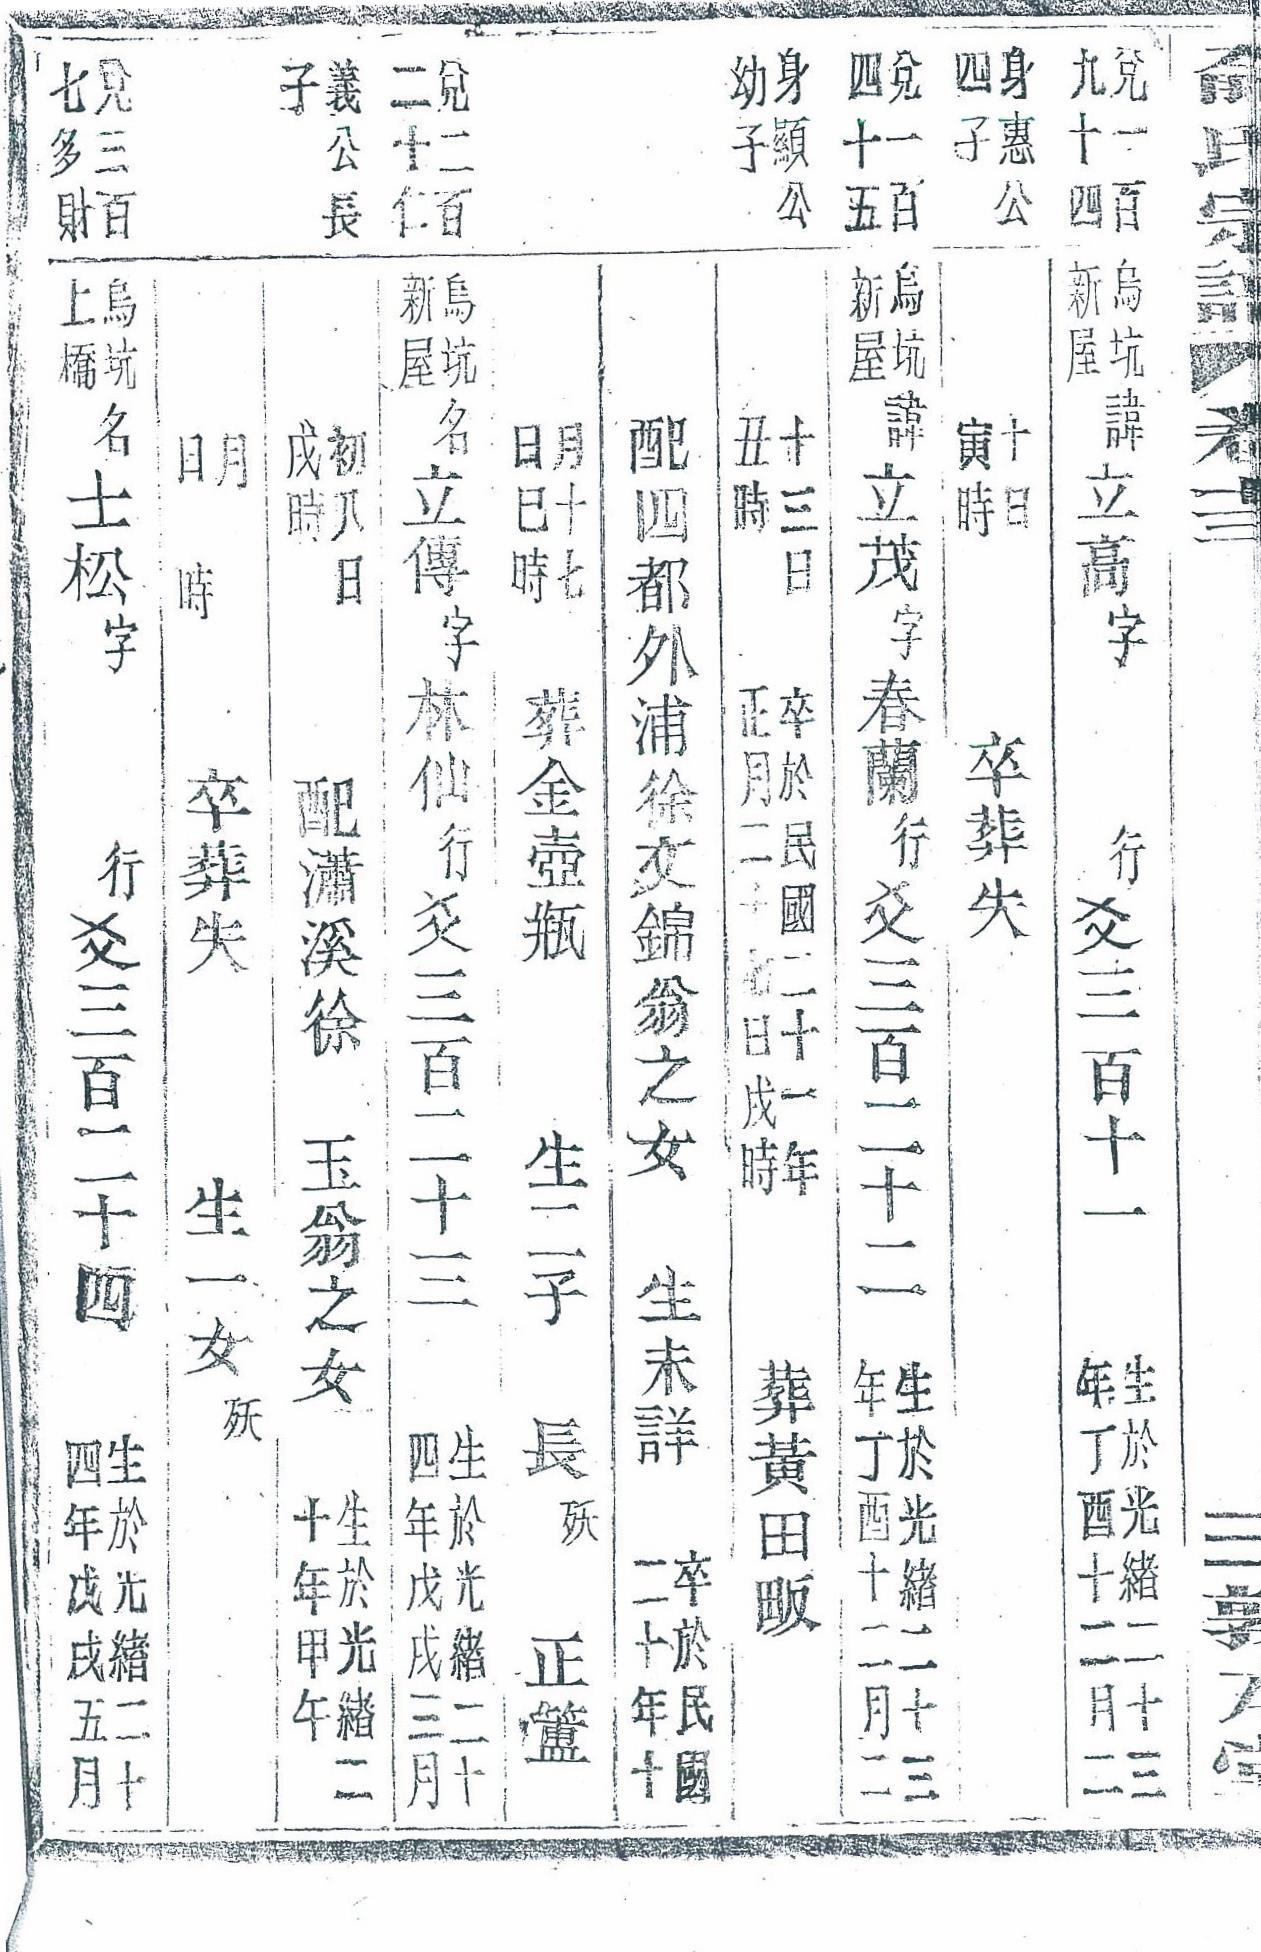 氏宗譜 卷三
兌一百
九十四
烏坑
新屋
諱立高字 行爻三百十一
生於光緒二十三
年丁酉十二月二
身惠公
四子
十日
寅時
卒葬失
兌一百
四十五
烏坑
新屋
諱立茂字春蘭行爻三百二十二
生於光緒二十三
年丁酉十二月二
身顯公
幼子
十三日
丑時
卒於民國二十一年
正月二十七日戌時
葬黃田畈
配四都外浦徐文錦翁之女 生未詳
卒於民國
二十年十
月十七
日巳時
葬金壺瓶 生二子 長殀 正簠
兌二百
二十仁
烏坑
新屋
名立傳字林仙行爻三百二十三
生於光緒二十
四年戊戌三月
義公長
子
初八日
戌時
配瀟溪徐 玉翁之女
生於光緒二
十年甲午
月
日 時
卒葬失 生一女殀
兌三百
七多財
烏坑
上橋
名士松字 行爻三百二十四
生於光緒二十
四年戊戌五月